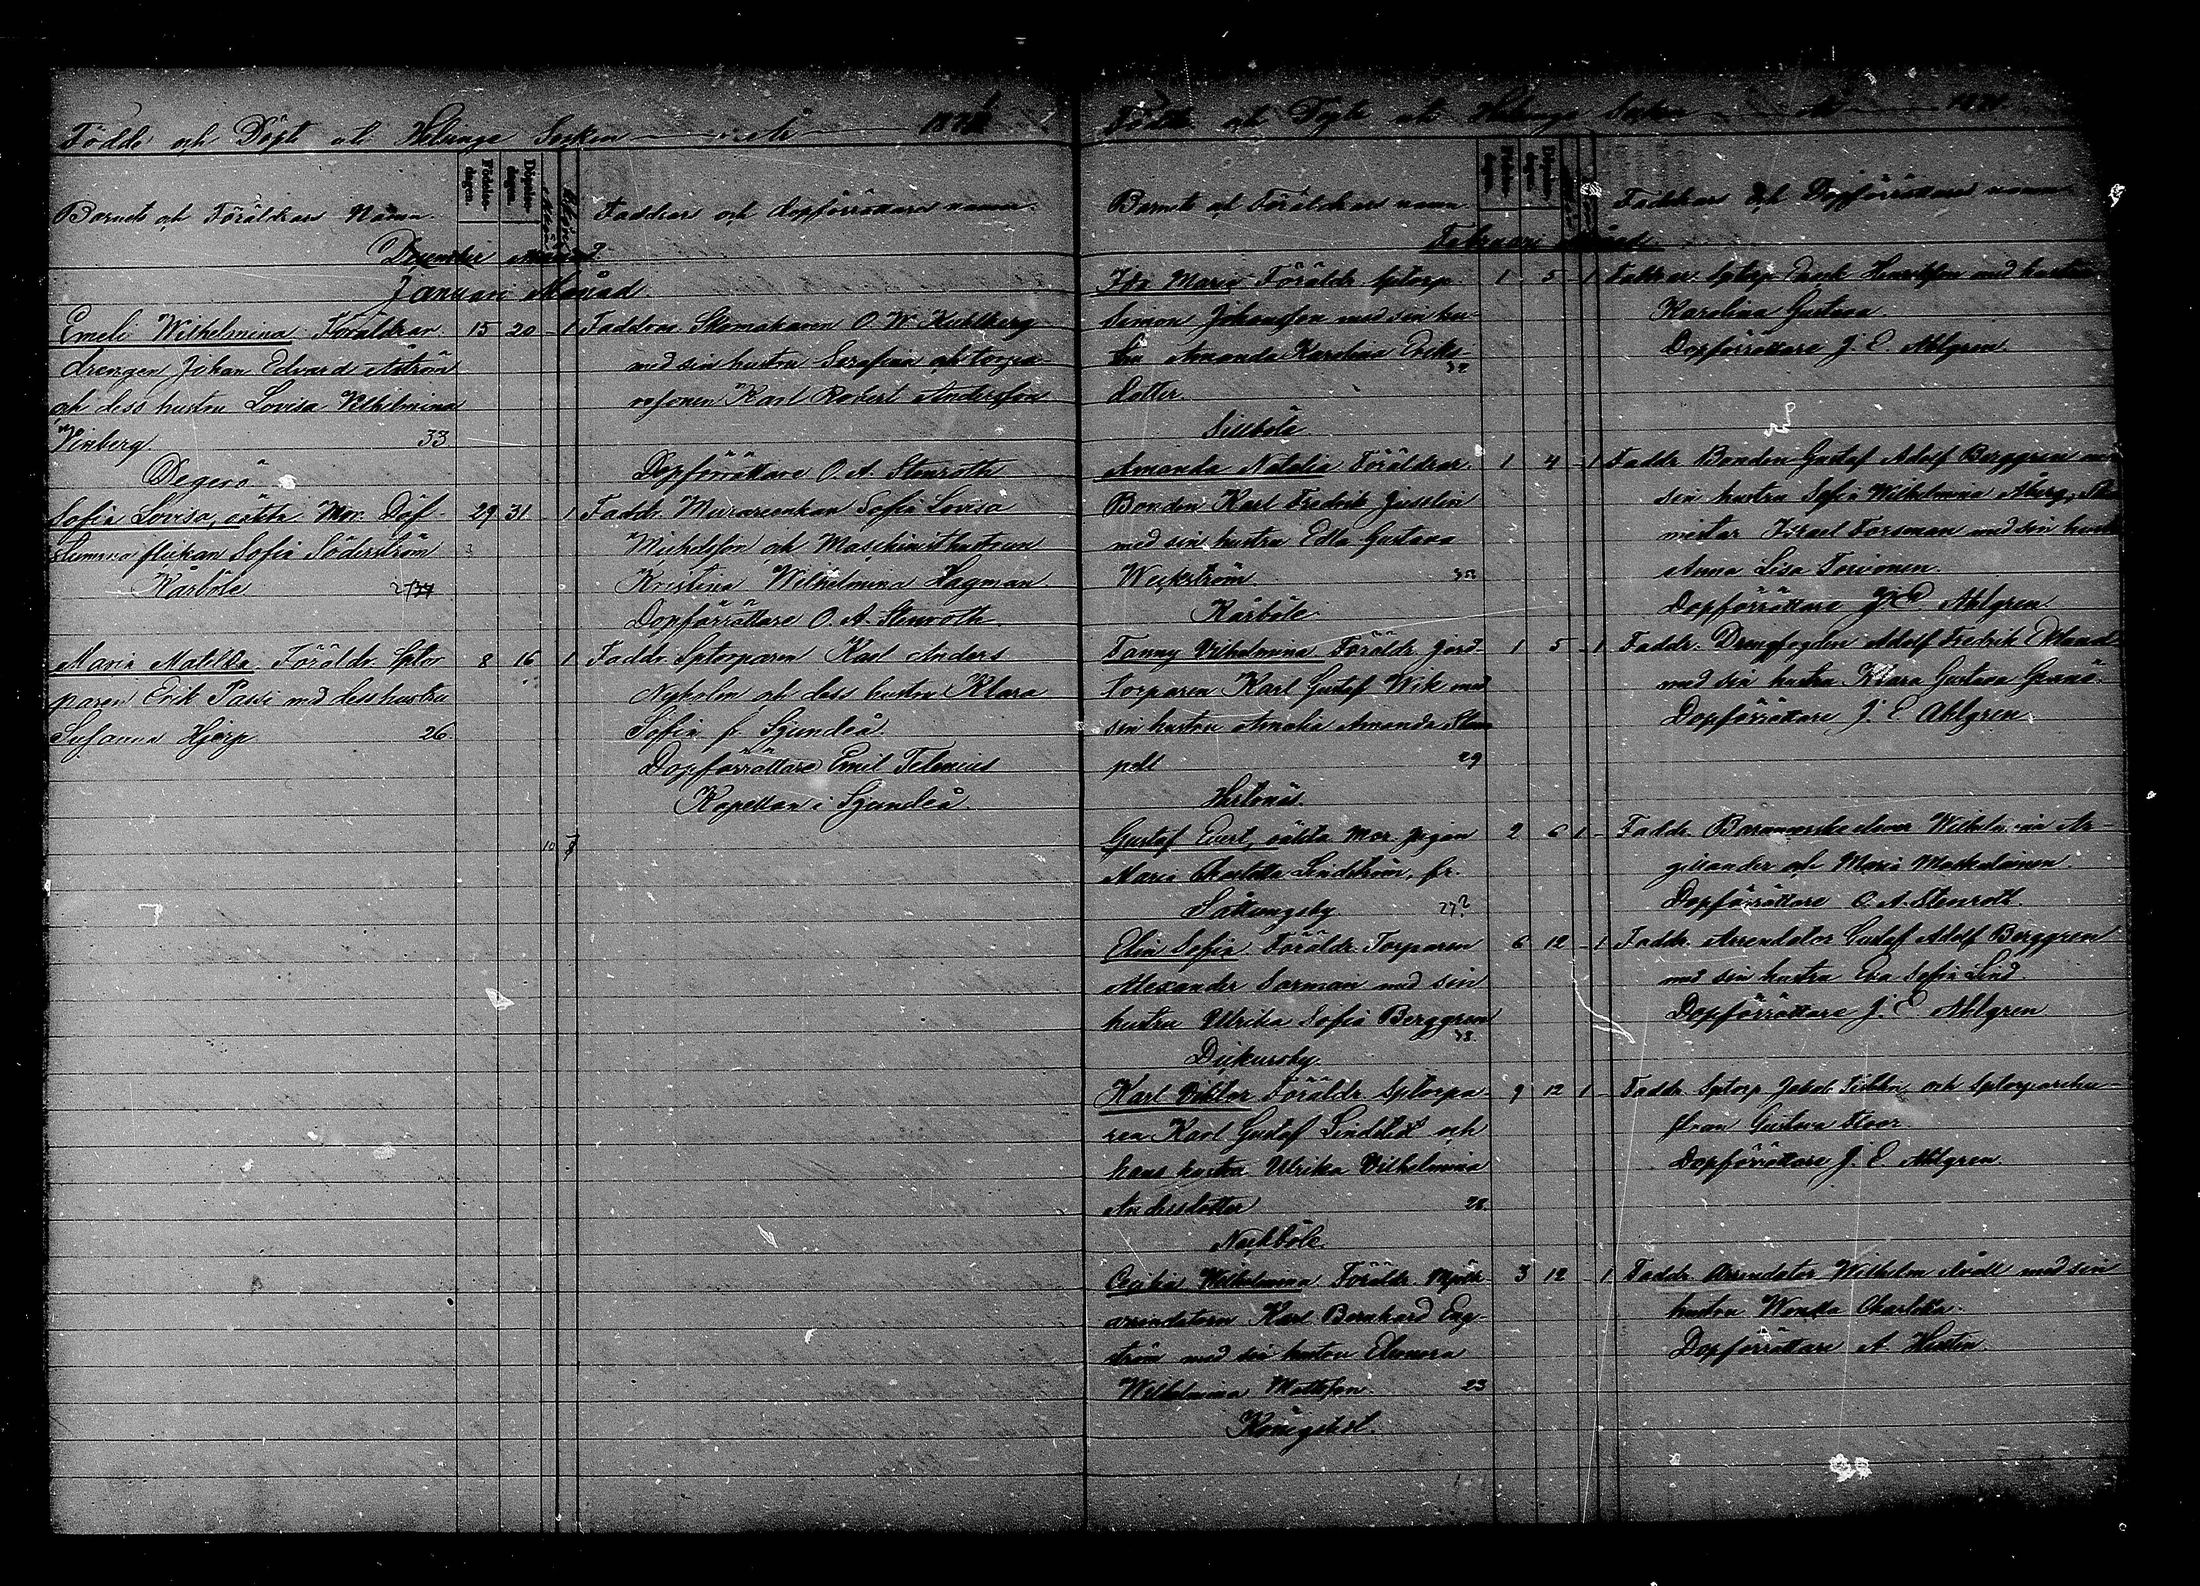 Födde och Döpt uti Helsinge Socken år 1874
Barnets och Föräldrars Namn.
Födelse-dagen.
Döpelse-dagen.
Mankön
Qvinkön
Faddrars och dopförrättares namn.
December Månad.
Januari Månad.
Emeli Wilhelmina Föräldrar 15 20 - 1
drengen Johan Edvard Åström
och dess hustru Lovisa Vilhelmina
Vinberg. 33
Degerö
Faddrar Skomakaren O. W. Kuhlberg
med sin hustru Serafina och
Karl Robert Andersson
Dopförrättare O. A. Stenroth
Sofia Lovisa, oäkta Mor. Döf- 29 31 - 1
stumma flickan Sofia Söderström
Kårböle
Faddr. Murareenkan Sofia Lovisa
Michelsson och Maschinisthustrun
Kristina Wilhelmina Hagman
Dopförrättare O. A. Stenroth.
Maria Matilda Föräldr. Sptor- 8 16 1
paren Erik Passi med dess hustru
Susanna Hjerp 26.
Faddr. Sptorparen Karl Anders
Nyholm och dess hustru Klara
Sofia fr. Sjundeå.
Dopförrättare Emil Telenius
Kapellan i Sjundeå.
10
Födde och Döpte uti Helsinge Socken år 1874.
Barnets och Föräldrars namn
Faddrars och Dopförrättares namn
Februari Månad.
Ida Maria Föräldr. Sptorp. 1 5 - 1
Simon Johansson med sin hu-
stru Amanda Karolina Eriks-
dotter. 32
Sillböle
Faddrar Sptorp. Henriksson med hustru
Karolina Gustava.
Dopförrättare J. E. Ahlgren.
Amanda Natalia Föräldrar. 1 4 - 1
Bonden Karl Fredrik Jusslin
med sin hustru Edla Gustava
Weckström
Kårböle
Faddr. Bonden Gustaf Adolf Berggren med
sin hustru Sofia Wilhelmina Åberg,
mästar Israel Forsman med sin hustru
Anna Lisa Toivonen.
Dopförrättare J. E. Ahlgren.
Fanny Vilhelmina Föräldr. Jord- 1 5 - 1
torparen Karl Gustaf Wik med
sin hustru Amalia Amanda Stam
pell 29
Hertonäs.
Faddr. Drengfogden Adolf Fredrik Eklund
med sin hustru Klara Gustava Granö.
Dopförrättare J. E. Ahlgren.
Gustaf Evert, oäkta Mor. pigan 2 6 1 -
Maria Charlotta Lindström, fr.
Sottungsby 27?
Faddr. Barnmorske elever Wilhelmina Ar-
gillander och Maria Moskalainen.
Dopförrättare O. A. Stenroth.
Elin Sofia Föräldr. Torparen 6 12 - 1
Alexander Sorman med sin
hustru Ulrika Sofia Berggren
38.
Dickursby.
Faddr. Arrendator Gustaf Adolf Berggren
med sin hustru Eva Sofia Lind
Dopförrättare J. E. Ahlgren
Karl Viktor Föräldr. Sptorpa- 9 12 1 -
ren Karl Gustaf Lindstedt och
hans hustru Ulrika Vilhelmina
Andersdotter 28.
Nackböle.
Faddr. Sptorp. Jakob och Sptorparehu-
strun Gustava Stoor.
Dopförrättare J. E. Ahlgren.
Cecilia Wilhelmina Föräldr. Mjölk- 3 12 - 1
arrendatorn Karl Bernhard Eng-
ström med sin hustru Eleonora
Wilhelmina Mattsson. 23
Königstedt.
Faddr. Arrendator Wilhelm med sin
hustru Charlotta.
Dopförrättare A. Hedén